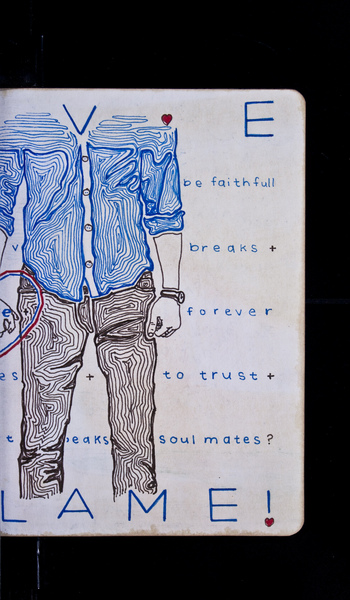 V E
be faithfull
v breaks +
e + forever
es + to trust +
t eaks soul mates?
LAME!